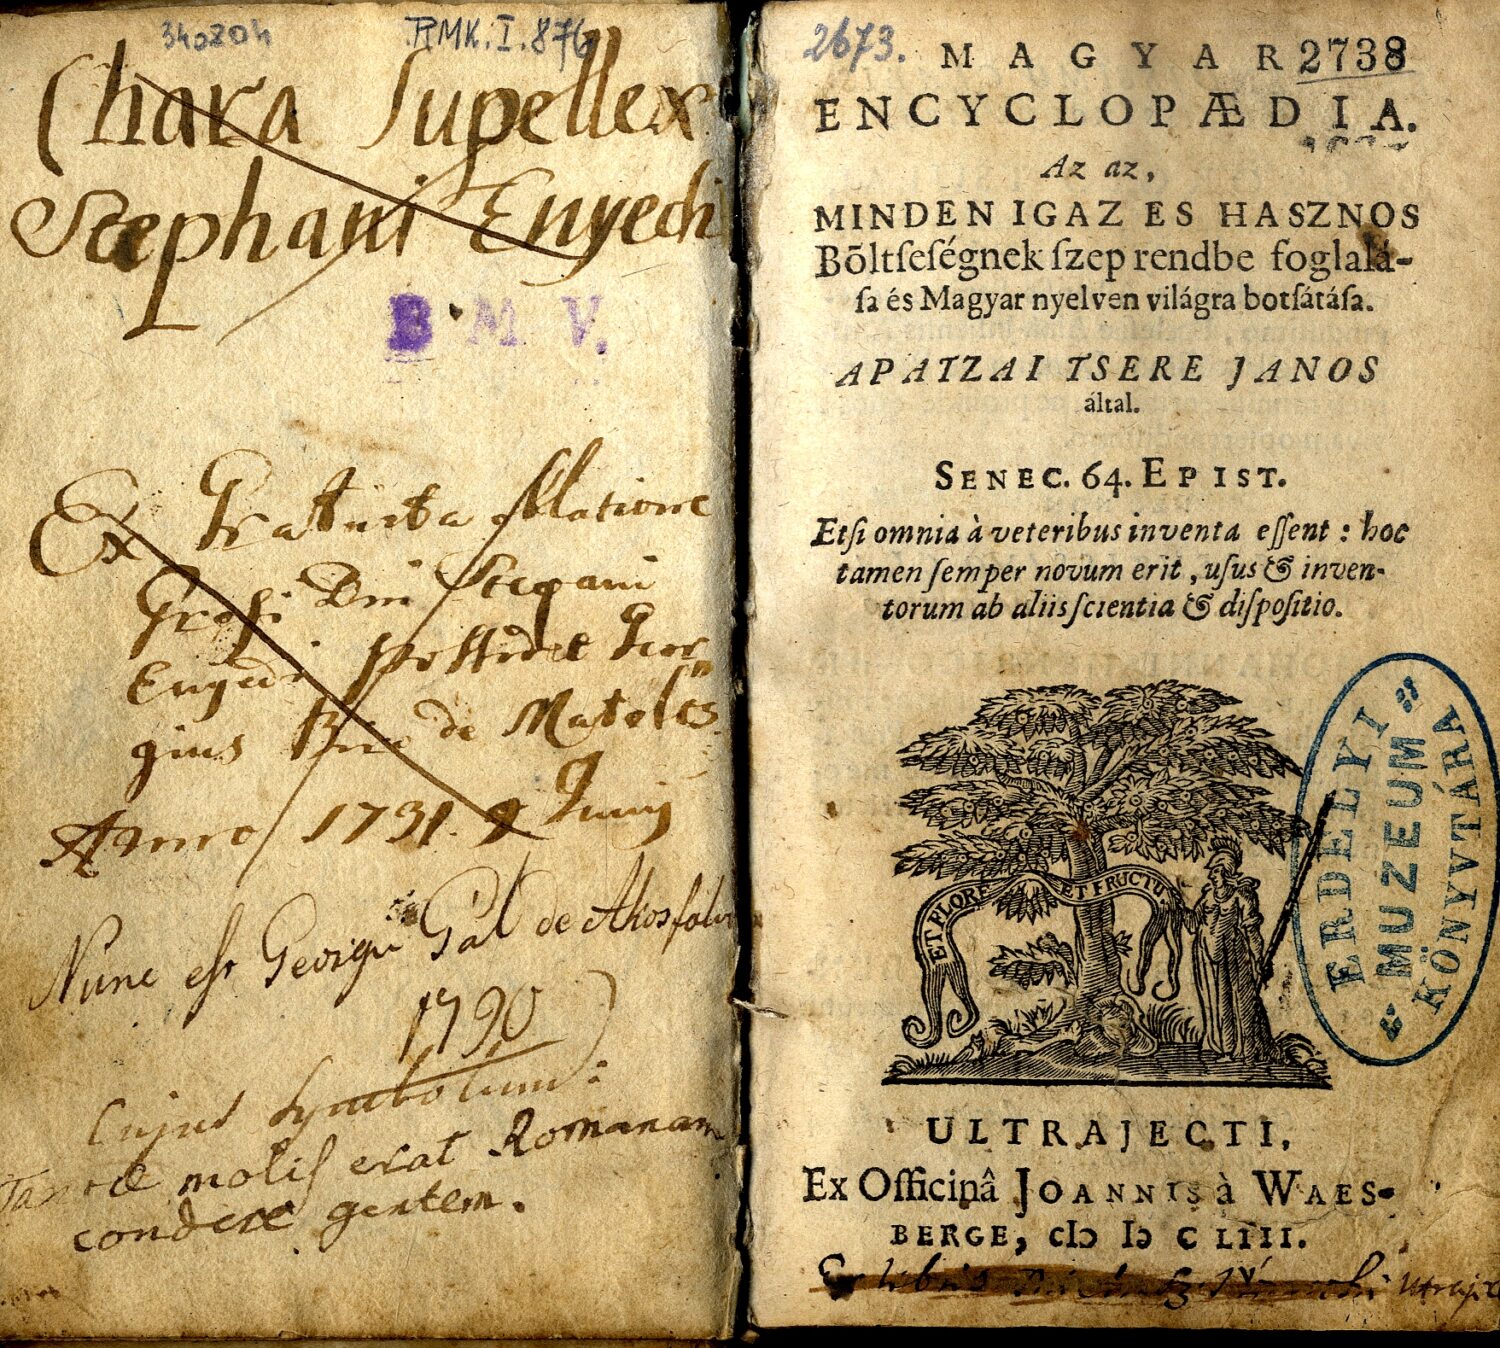 340204
RMK. I. 876
Chara Supellex
Stephani Enyedi
B. M. V.
Ex Gratuita oblatione
Dni Stepani
Enyedi possidet Geor
gius de Matolcs
Anno 1731. 9 Junij
Nunc est Georgii Gál de Akosfalv
1790
Cujus Symbolum:
Tantae molis erat Romanam
condere gentem.
2673.
MAGYAR 2738
ENCYCLOPÆDIA.
Az az,
MINDEN IGAZ ES HASZNOS
Bőltſeſégnek ſzep rendbe foglalá-
ſa és Magyar nyelven világra botſátáſa.
APATZAI TSERE JANOS
által.
SENEC. 64. EPIST.
Etſi omnia à veteribus inventa eſſent : hoc
tamen ſemper novum erit, uſus & inven-
torum ab aliis ſcientia & diſpoſitio.
ET FLORE ET FRUCTU
ERDÉLYI
MUZEUM
KÖNYVTÁRA
ULTRAJECTI,
Ex Officinâ JOANNIS à WAES-
BERGE, cIↄ Iↄ C LIII.
Ex libris